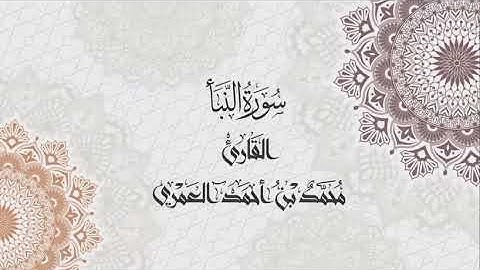 سُورَةُ النَّبَأ
القَارئ
مُحَمَّدُ بْنُ أحْمَد العَمْري